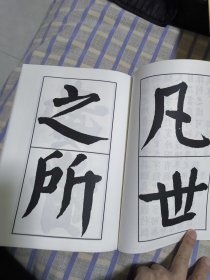 凡世
之所